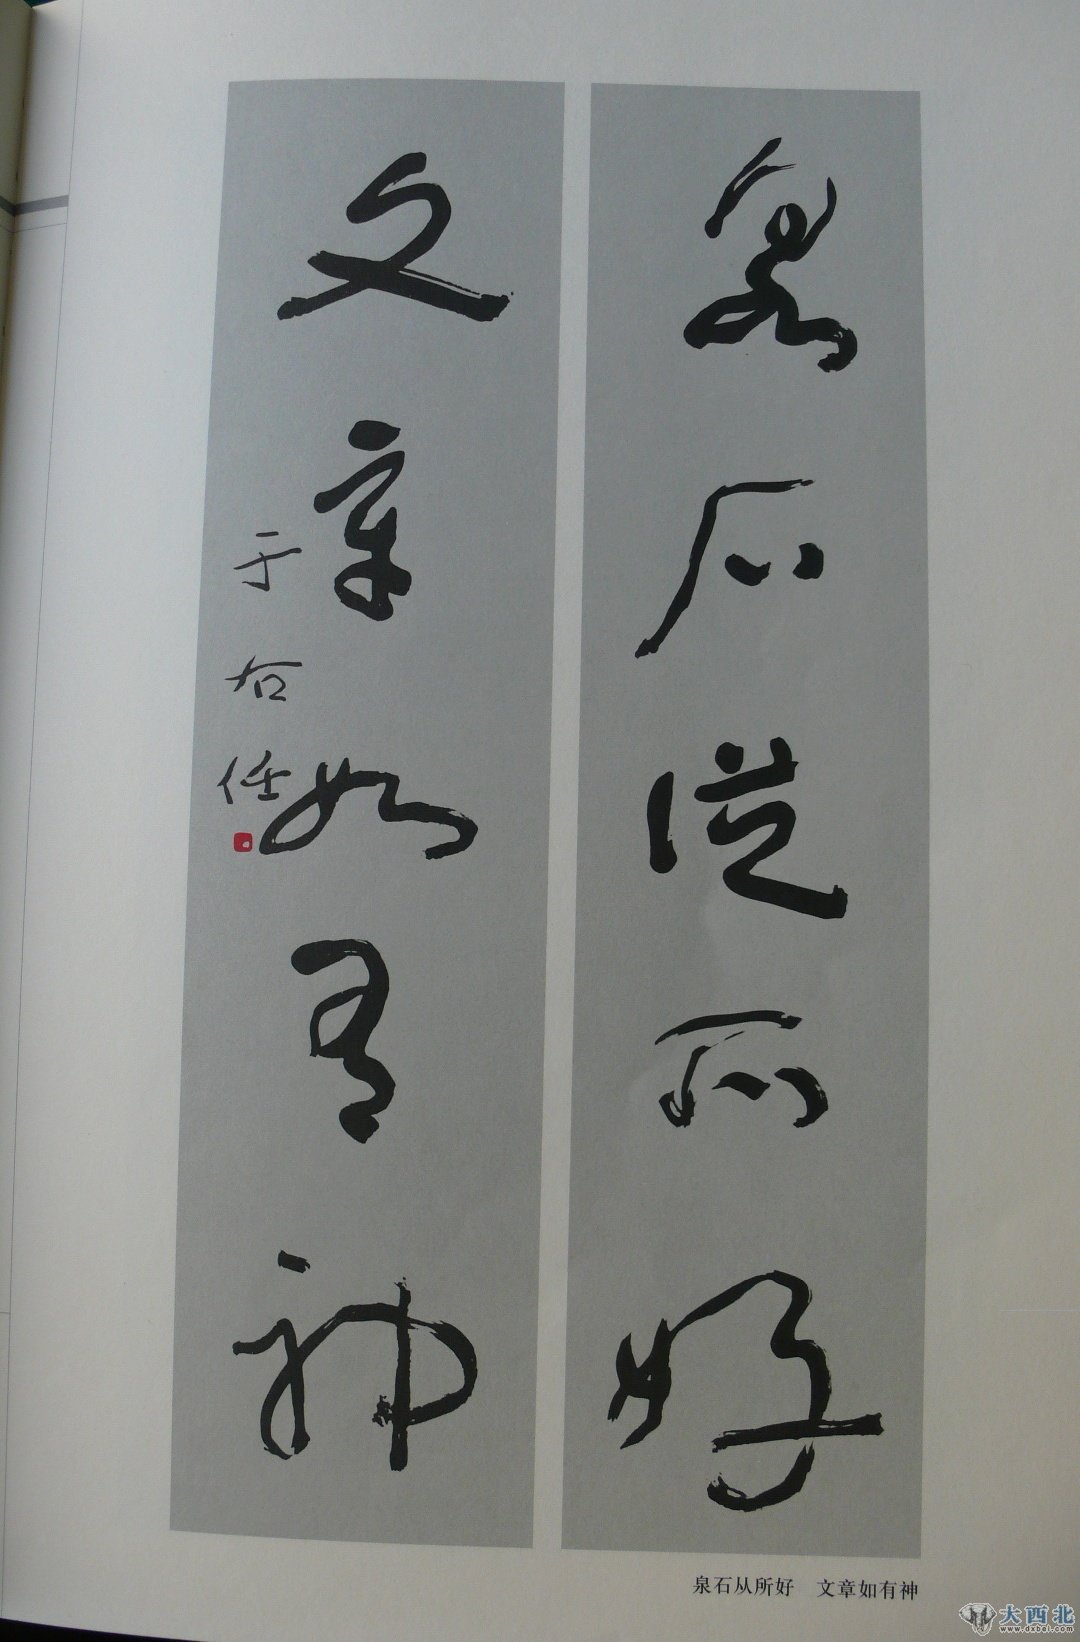 泉石從所好
文章如有神
于右任
泉石从所好 文章如有神
大西北
www.dxbei.com